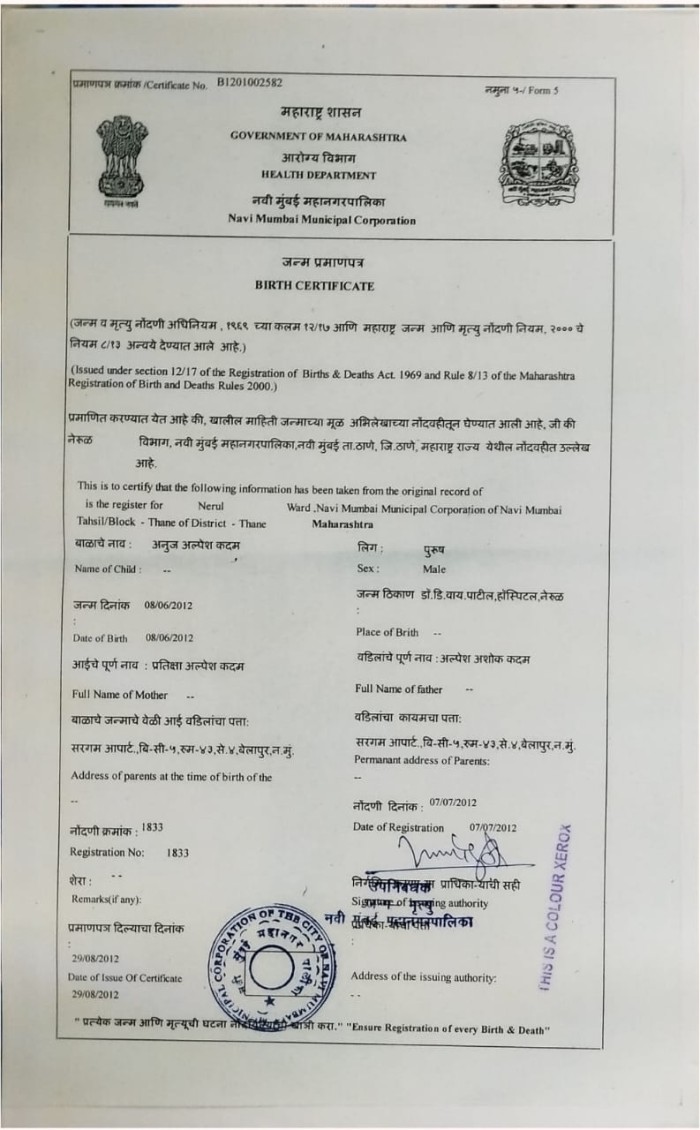 प्रमाणपत्र क्रमांक /Certificate No. B1201002582
नमुना ५-/ Form 5
महाराष्ट्र शासन
GOVERNMENT OF MAHARASHTRA
आरोग्य विभाग
HEALTH DEPARTMENT
नवी मुंबई महानगरपालिका
Navi Mumbai Municipal Corporation
जन्म प्रमाणपत्र
BIRTH CERTIFICATE
(जन्म व मृत्यु नोंदणी अधिनियम , १९६९ च्या कलम १२/१७ आणि महाराष्ट्र जन्म आणि मृत्यु नोंदणी नियम, २००० चे
नियम ८/१३ अन्वये देण्यात आले आहे.)
(Issued under section 12/17 of the Registration of Births & Deaths Act. 1969 and Rule 8/13 of the Maharashtra
Registration of Birth and Deaths Rules 2000.)
प्रमाणित करण्यात येत आहे की, खालील माहिती जन्माच्या मूळ अभिलेखाच्या नोंदवहीतून घेण्यात आली आहे, जी की
नेरूळ विभाग, नवी मुंबई महानगरपालिका,नवी मुंबई ता.ठाणे, जि.ठाणे, महाराष्ट्र राज्य येथील नोंदवहीत उल्लेख
आहे.
This is to certify that the following information has been taken from the original record of
is the register for Nerul Ward ,Navi Mumbai Municipal Corporation of Navi Mumbai
Tahsil/Block - Thane of District - Thane Maharashtra
बाळाचे नाव : अनुज अल्पेश कदम लिंग : पुरूष
Name of Child : -- Sex : Male
जन्म दिनांक 08/06/2012 जन्म ठिकाण डॉ.डि.वाय.पाटील,हॉस्पिटल,नेरूळ
: :
Date of Birth 08/06/2012 Place of Brith --
आईचे पूर्ण नाव : प्रतिक्षा अल्पेश कदम वडिलांचे पूर्ण नाव : अल्पेश अशोक कदम
Full Name of Mother -- Full Name of father --
बाळाचे जन्माचे वेळी आई वडिलांचा पत्ता: वडिलांचा कायमचा पत्ता:
सरगम आपार्ट.,बि-सी-५,रूम-४३,से.४,बेलापुर,न.मुं. सरगम आपार्ट.,बि-सी-५,रूम-४३,से.४,बेलापुर,न.मुं.
Address of parents at the time of birth of the Permanant address of Parents:
-- --
नोंदणी क्रमांक : 1833 नोंदणी दिनांक : 07/07/2012
Registration No: 1833 Date of Registration 07/07/2012
शेरा : -- प्राधिका-याची सही
Remarks(if any): Signature of issuing authority
उपनिबंधक
जन्म मृत्यु
नवी मुंबई महानगरपालिका
प्रमाणपत्र दिल्याचा दिनांक
:
29/08/2012
Date of Issue Of Certificate Address of the issuing authority:
29/08/2012 --
MUNICIPAL CORPORATION OF THE CITY OF NAVI MUMBAI
नवी मुंबई महानगर पालिका
THIS IS A COLOUR XEROX
" प्रत्येक जन्म आणि मृत्यूची घटना खात्री करा." "Ensure Registration of every Birth & Death"